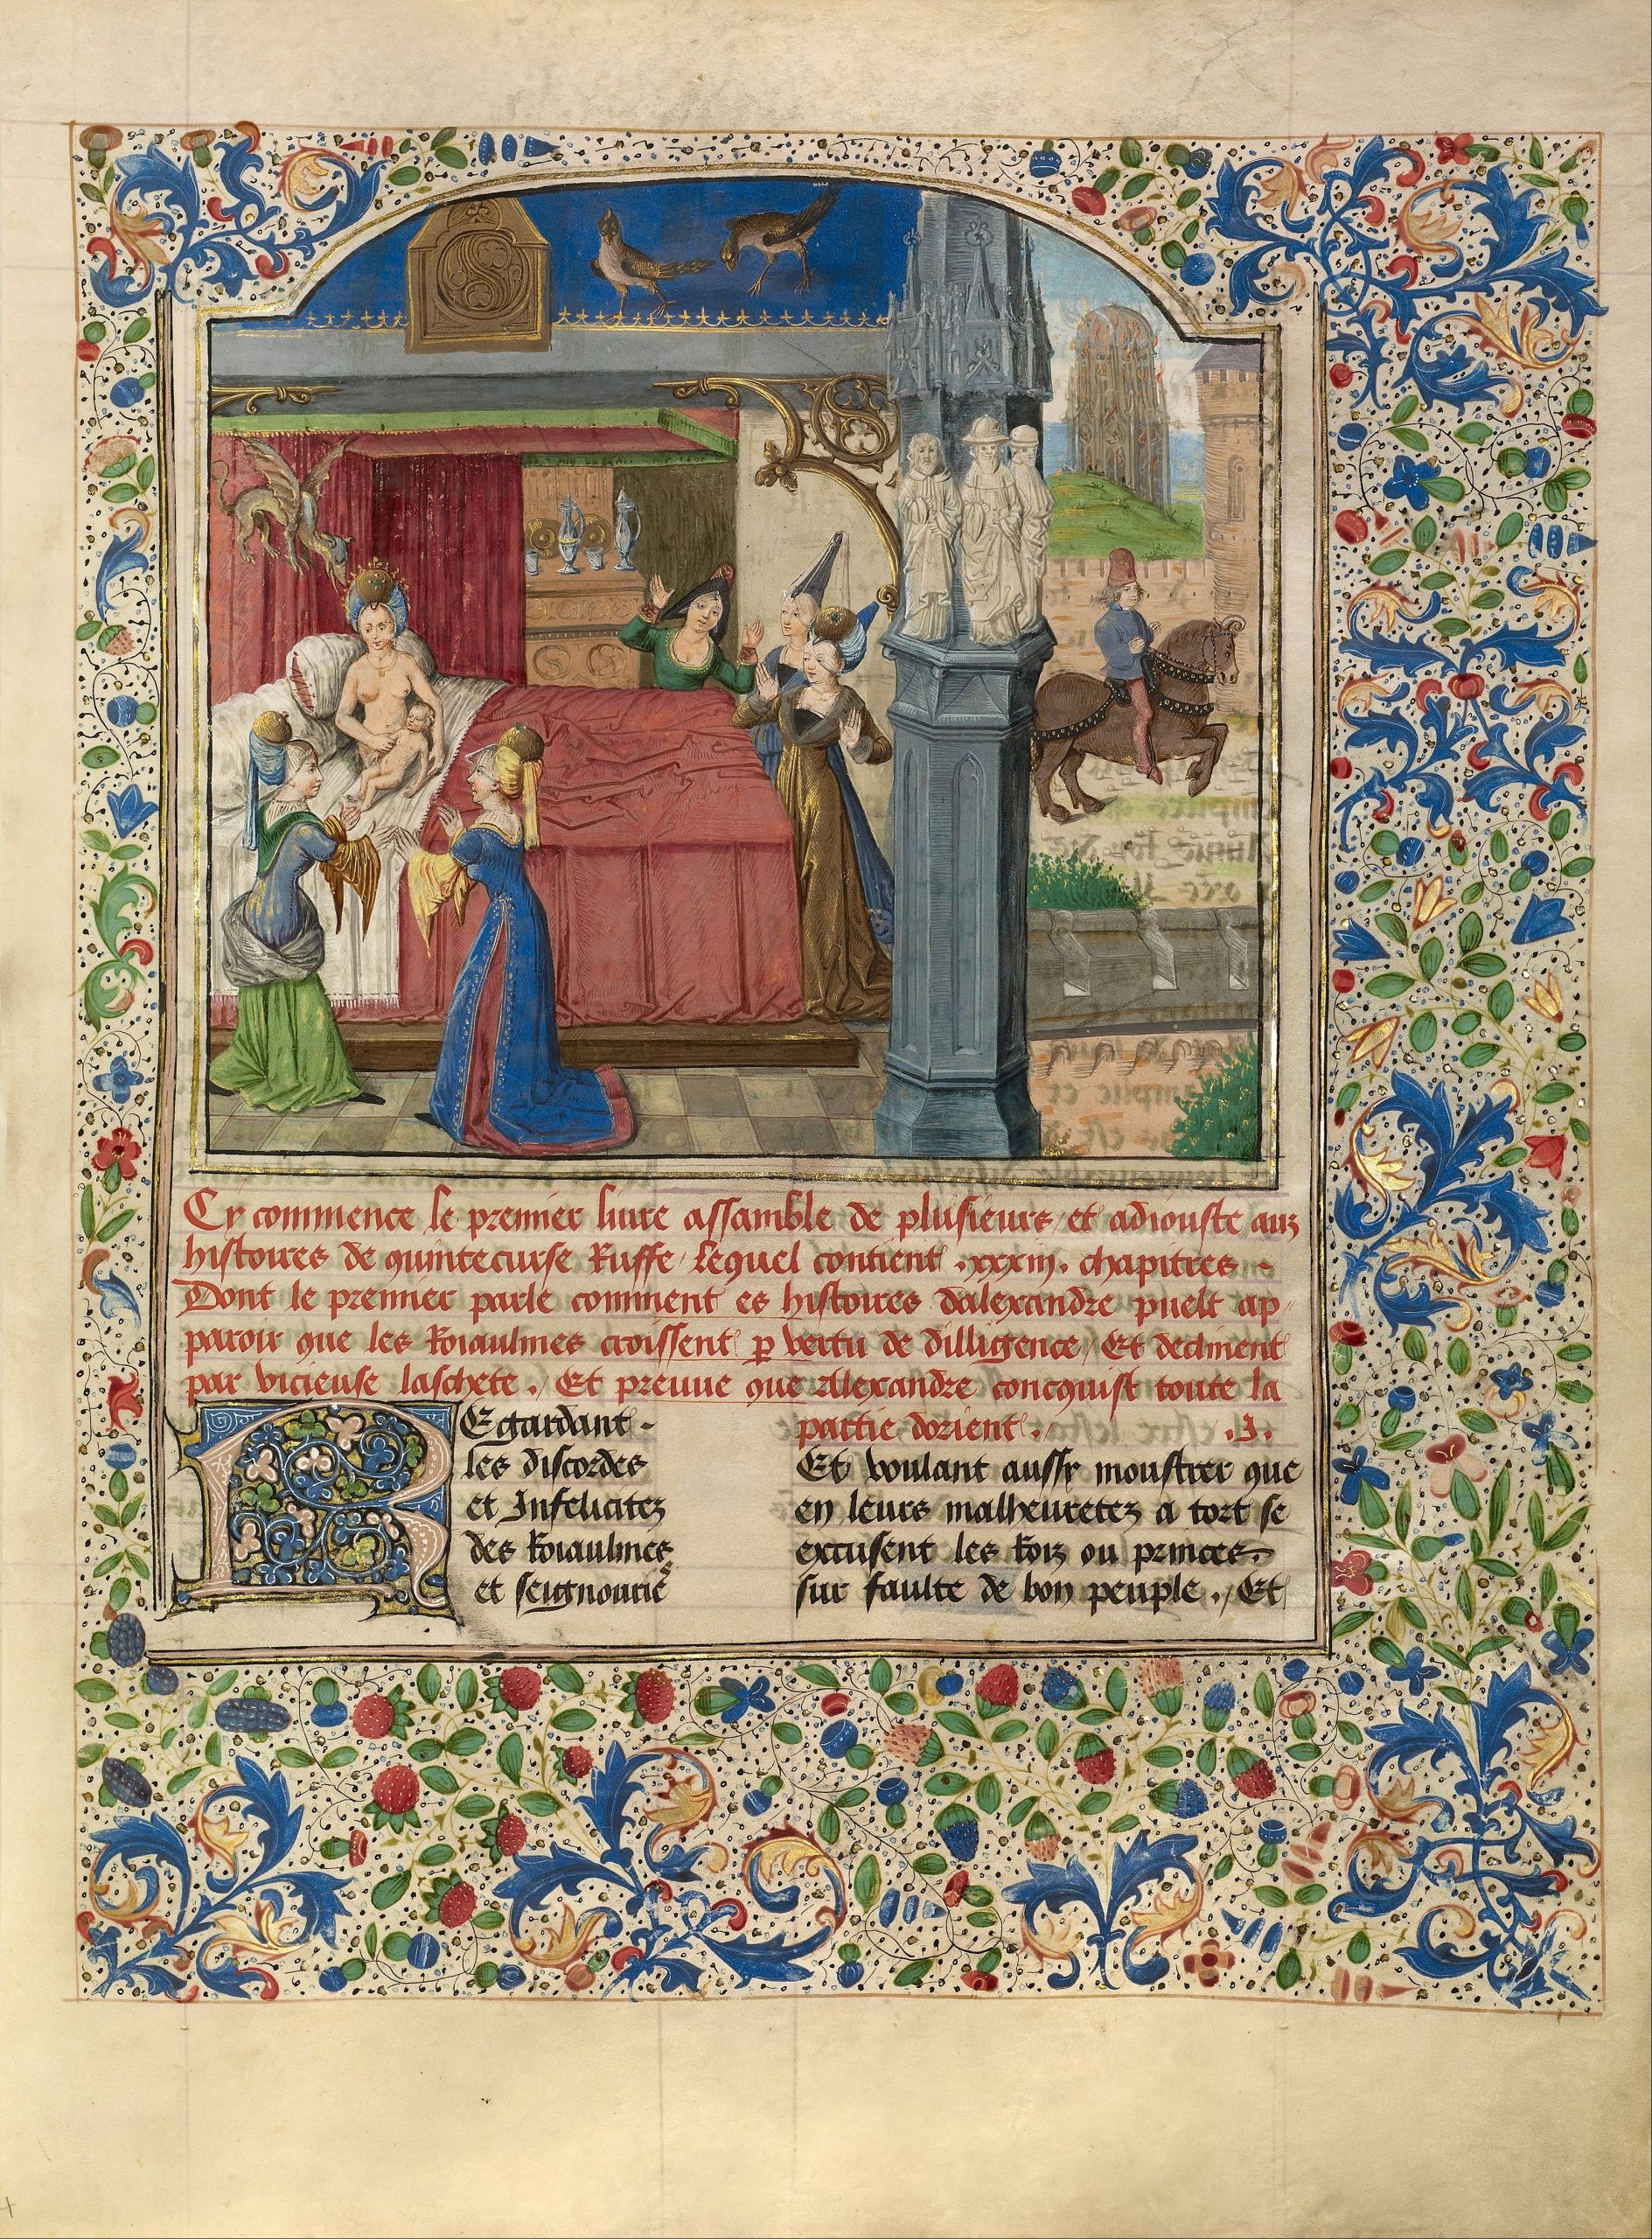 Cy commence le premier livre assamble de plusieurs / et adiouste aux
histoires de quintecurse Ruffe / lequel contient .xxxiii. chapitres ~
Dont le premier parle comment es histoires dalexandre puelt ap-
paroir que les Roiaulmes croissent p vertu de dilligence / Et declinent
par vicieuse laschete ./ Et preuue que Alexandre concquist toute la
partie dorient ./ .I.
REgardant -
les discordes
et Infelicitez
des Roiaulmes
et seignourie
Et voulant aussy moustrer que
en leurs malheuretez a tort se
excusent les Rois ou princes.
sur faulte de bon peuple ./ Et